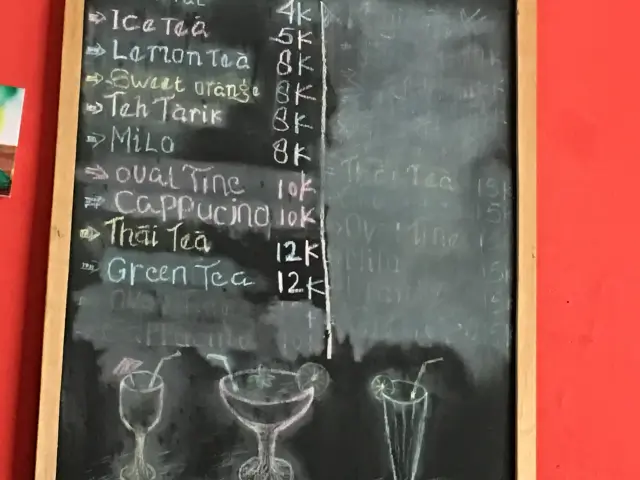 4K
Ice Tea 5K
Lemon Tea 8K
Sweet orange 8K
Teh Tarik 8K
MiLo 8K
ovaltine 10K
Cappucino 10K
Thai Tea 12K
Green Tea 12K
Thai Tea 15K